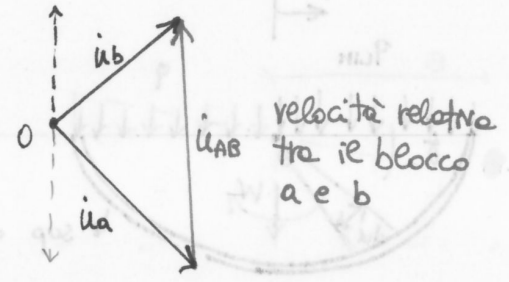 u̇b
O
u̇AB
u̇a
velocità relativa
tra il blocco
a e b